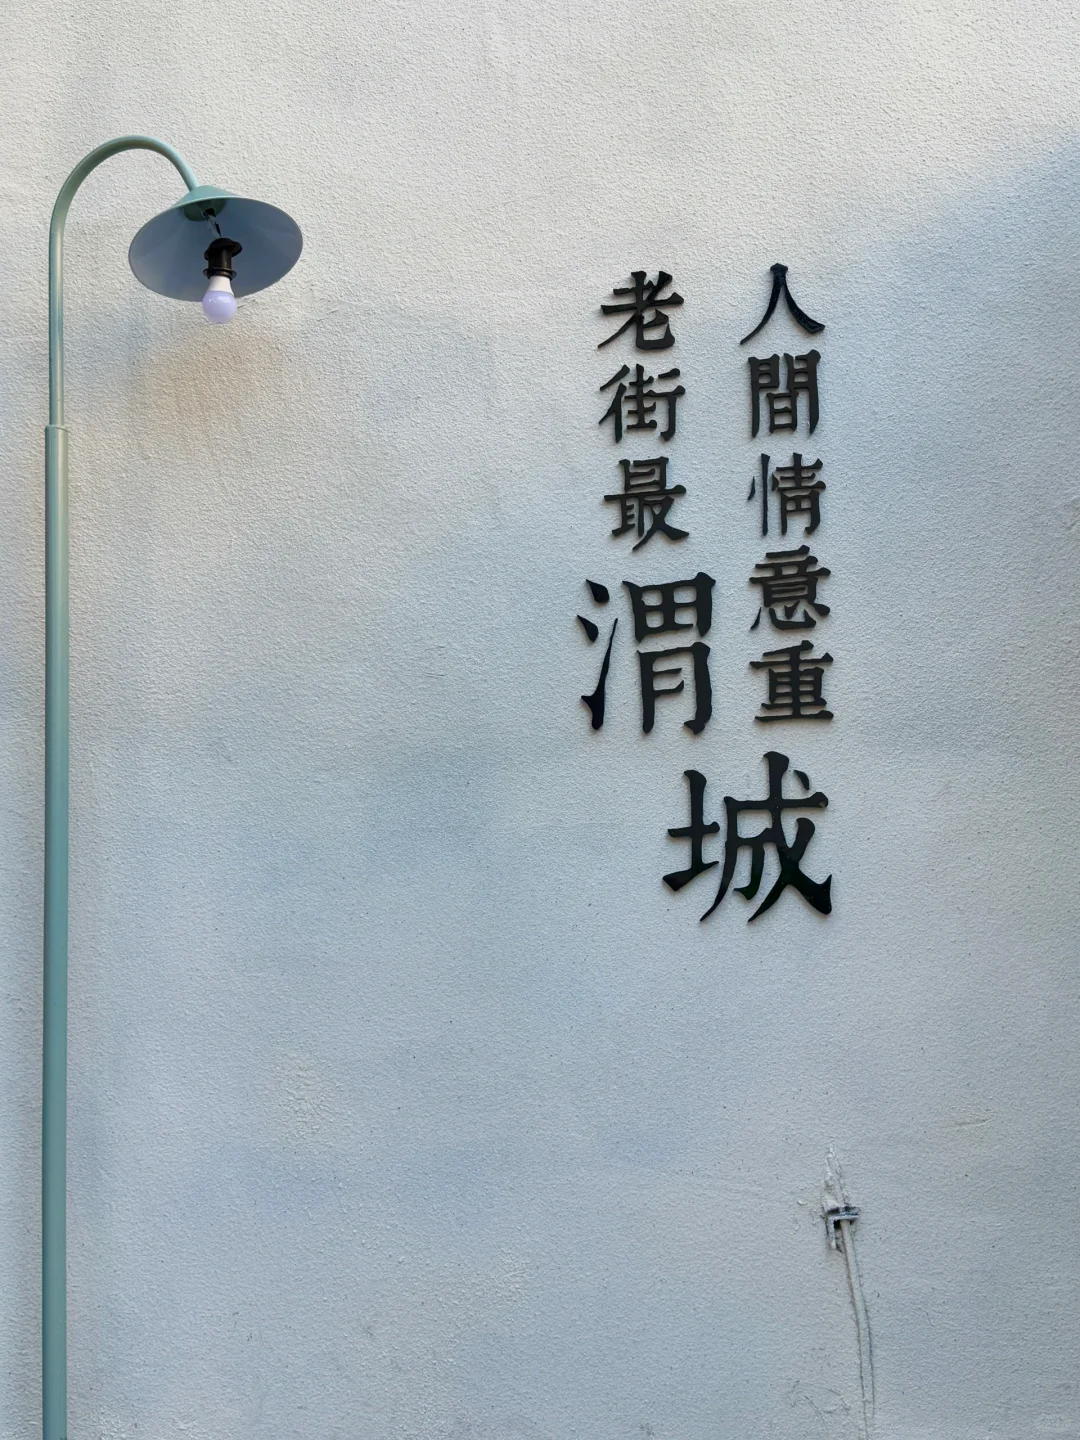 人間情意重
老街最渭城